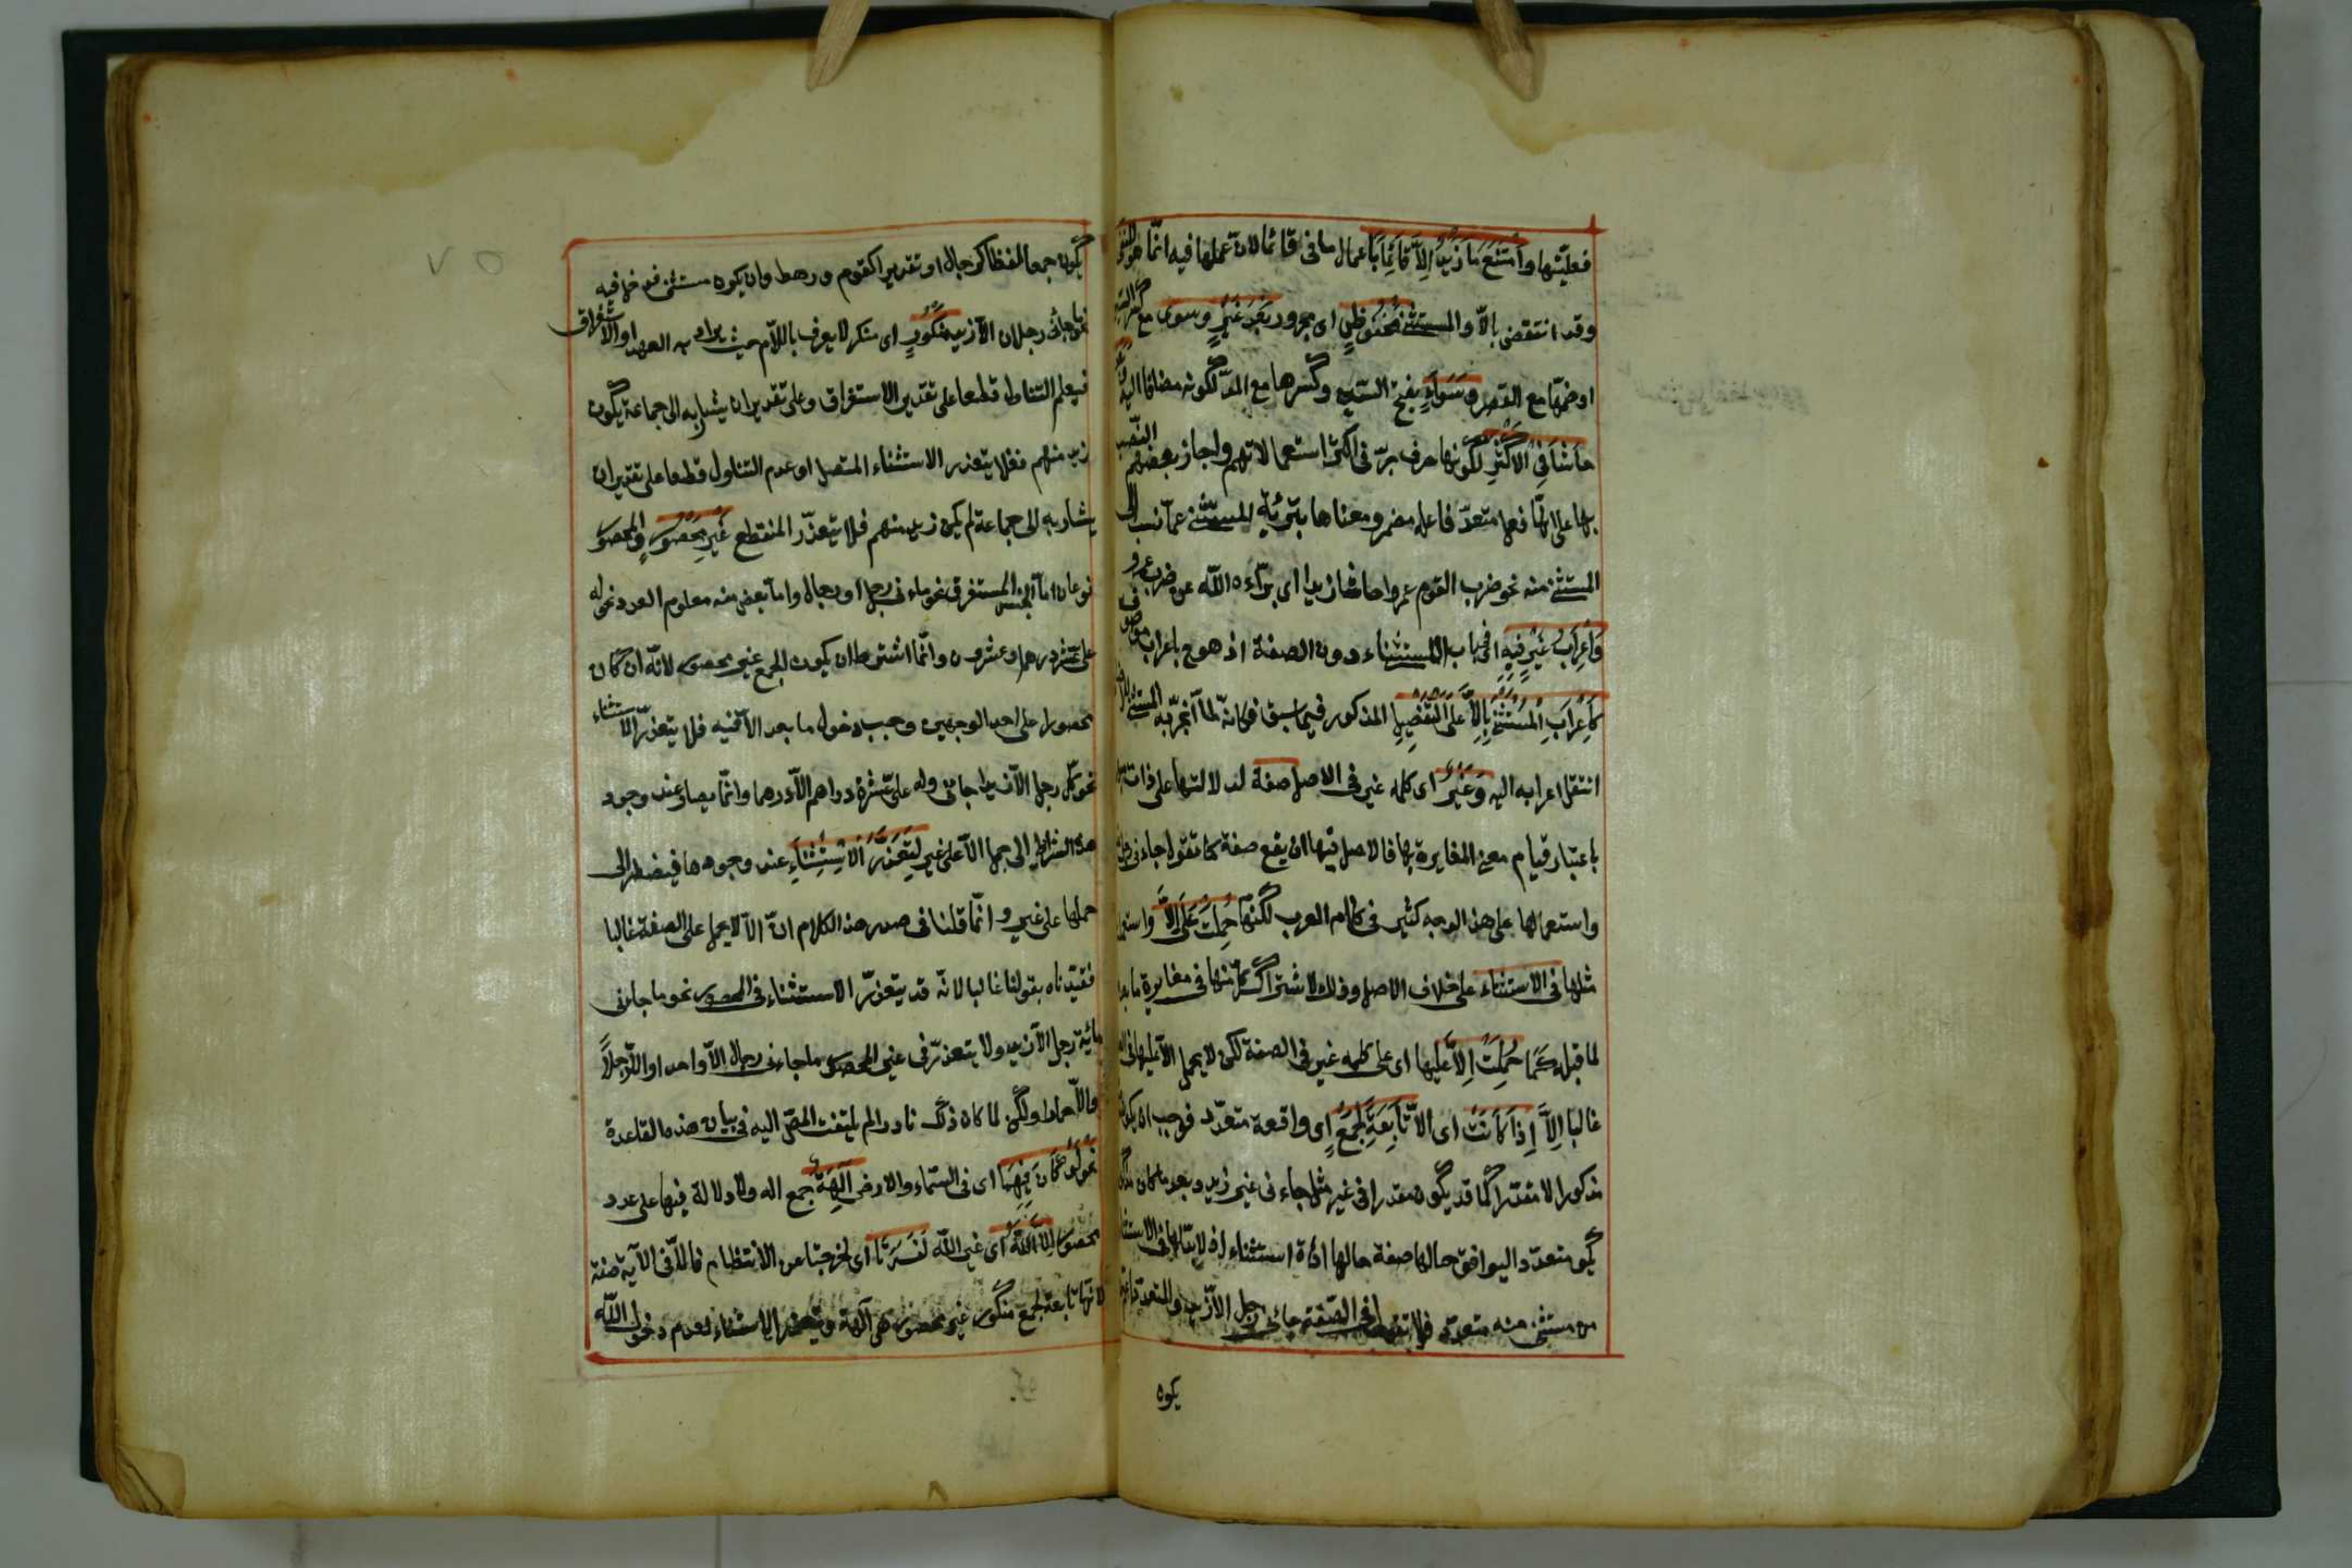 فعليتها وَامْتَنَعَ مَا زَيْدٌ إِلَّا قَائِمًا باعمال ما فى قائما لان عملها فيه انما هو للنفى
وقد انتقض بالّا والمستثنى مَخْفُوضٌ اى مجرور بَعْدَ غَيْرِ وسوى مع كسر السين
او ضمّها مع القصر وسَوَاءٍ بفتح السين وكسرها مع المدّ لكونه مضافا اليه
حَاشَا فِي الْأَكْثَرِ لكونها حرف جرّ فى اكثر استعمالاتهم واجاز بعضهم النّصب
بها على انّها فعل متعدّ فاعله مضمر ومعناها تبرئة المستثنى عما نسب الى
المستثنى منه نحو ضرب القوم عمروا حاشا زيدا اى برّأه الله عن ضرب عمرو
وَإِعْرَابُ غَيْرٍ فِيهِ اى فى باب الاستثناء دون الصفة اذ هو ح باعراب موصوف
كَإِعْرَابِ الْمُسْتَثْنَى بِإِلَّا عَلَى التَّفْصِيلِ المذكور فيما سبق فكانه لما انجرّ به المستثنى
انتقل اعرابه اليه وَغَيْرُ اى كلمة غير فى الاصل صفة لدلالتها على ذات
باعتبار قيام معنى المغايرة بها فالاصل فيها ان يقع صفة كما تقول جاءنى رجل
واستعمالها على هذا الوجه كثير فى كلام العرب لكنّها حُمِلَتْ عَلَى إِلَّا واستعمل
مثلها فى الاستثناء على خلاف الاصل وذلك لاشتراك كل منهما فى مغايرة ما بعد
لما قبله كَمَا حُمِلَتْ إِلَّا عَلَيْهَا اى على كلمه غير فى الصفة لكن لا يحمل الّا عليها فى
غالبا إِلَّا إِذَا كَانَتْ اى الّا تَابِعَةً لِجَمْعٍ اى واقعة متعدّد فوجب ان يكون
مذكورا لا مقدّرا كما قد يكون مقدرا فى غير مثل جاء نى غير زيد وبعد ما كان مذكورا
يكو متعدّدا ليوافق حالها صفة حالها اداة استثناء اذ لا بدّ لها فى الاستثناء
من مستثنى منه متعدّد فلا تقول فى الصّفة جاءنى رجل الّا زيد والمتعدد
يكون
يكون جمعا لفظا كرجال او تقديرا كقوم ورهط وان يكون مستثنى فدخل فيه
نحو ما جاءنى رجلان الّا زيد مَنْكُورٍ اى منكر لا يعرف باللّام حيث يراد به العهد او الاستغراق
فيعلم التناول قطعا على تقدير الاستغراق وعلى تقدير ان يشار به الى جماعة يكون
زيد منهم فلا يتعذر الاستثناء المتصل او عدم التناول قطعا على تقدير ان
يشار به الى جماعة لم يكن زيد منهم فلا يتعذّر المنقطع غَيْرِ مَحْصُورٍ والمحصور
نوعان اما الجنس المستغرق نحو ما جاءنى رجل او رجال واما بعض منه معلوم العدد نحو له
على عشرة درهم او عشرون وانّما اشترط ان يكون الجمع غير محصور لانّه ان كان
محصورا على احد الوجهين وجب دخول ما بعد الّا فيه فلا يتعذّر الاستثناء
نحو كل رجل الّا زيدا جاءنى وله علىّ عشرة دراهم الّا درهما وانّما يصار عند وجود
هذه الشرائط الى حمل الّا على غير لِتَعَذُّرِ الْاِسْتِثْنَاءِ عند وجودها فيضطر الى
حملها على غير وانّما قلنا فى صدر هذا الكلام انّ الّا لا يحمل على الصفة غالبا
فقيّدناه بقولنا غالبا لانه قد يتعذّر الاستثناء فى المحصور نحو ما جاءنى
مائة رجل الّا زيد ولا يتعذّر فى غير المحصور ما جاءنى رجال الّا واحد او الّا رجلاً
والّا حمارا ولكن لما كان ذلك نادرا لم يلتفت المص اليه فى بيان هذه القاعدة
نحو لَوْ كَانَ فِيهِمَا اى فى السّماء والارض آلِهَةٌ جمع اله ولا دلالة فيها على عدد
محصور إِلَّا اللَّهُ اى غير اللّه لَفَسَدَتَا اى لخرجتا عن الانتظام فالّا فى الآية صفة
لانها تابعة لجمع منكور غير محصور هى آلهة ويتعذر الاستثناء لعدم دخول اللّه